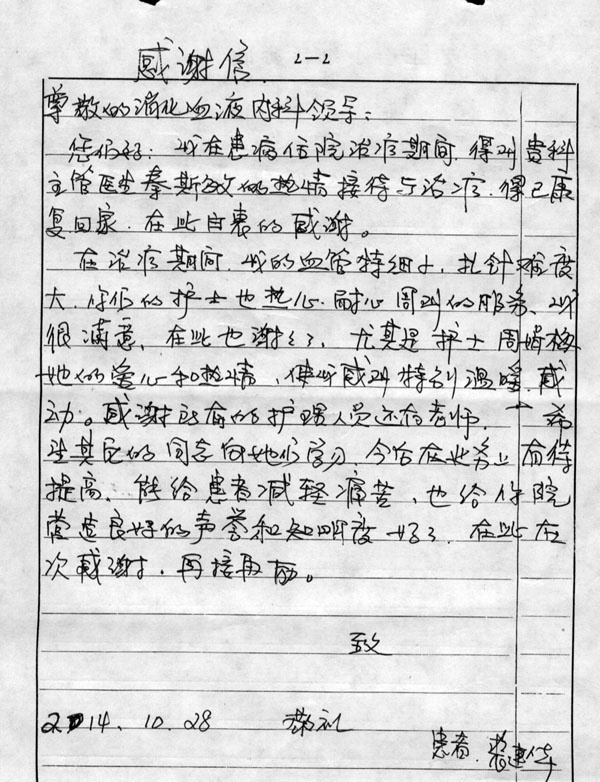 感谢信 2-2
尊敬的消化血液内科领导：
您们好：我在患病住院治疗期间，得到贵科
主管医生秦斯敏的热情接待与治疗，得已康
复回家，在此自衷的感谢。
在治疗期间，我的血管特细小，扎针难度
大，你们的护士也热心耐心周到的服务，我
很满意，在此也谢谢了，尤其是护士周
她的爱心和热情，使我感到特别温暖，感
动。感谢所有的护理人员还有老师，希
望其它的同志向她们学习，今后在业务上有待
提高，能给患者减轻痛苦，也给你院
营造良好的声誉和知晓度好了，在此在
次感谢，再接再励。
致
2014.10.28 敬礼
患者：